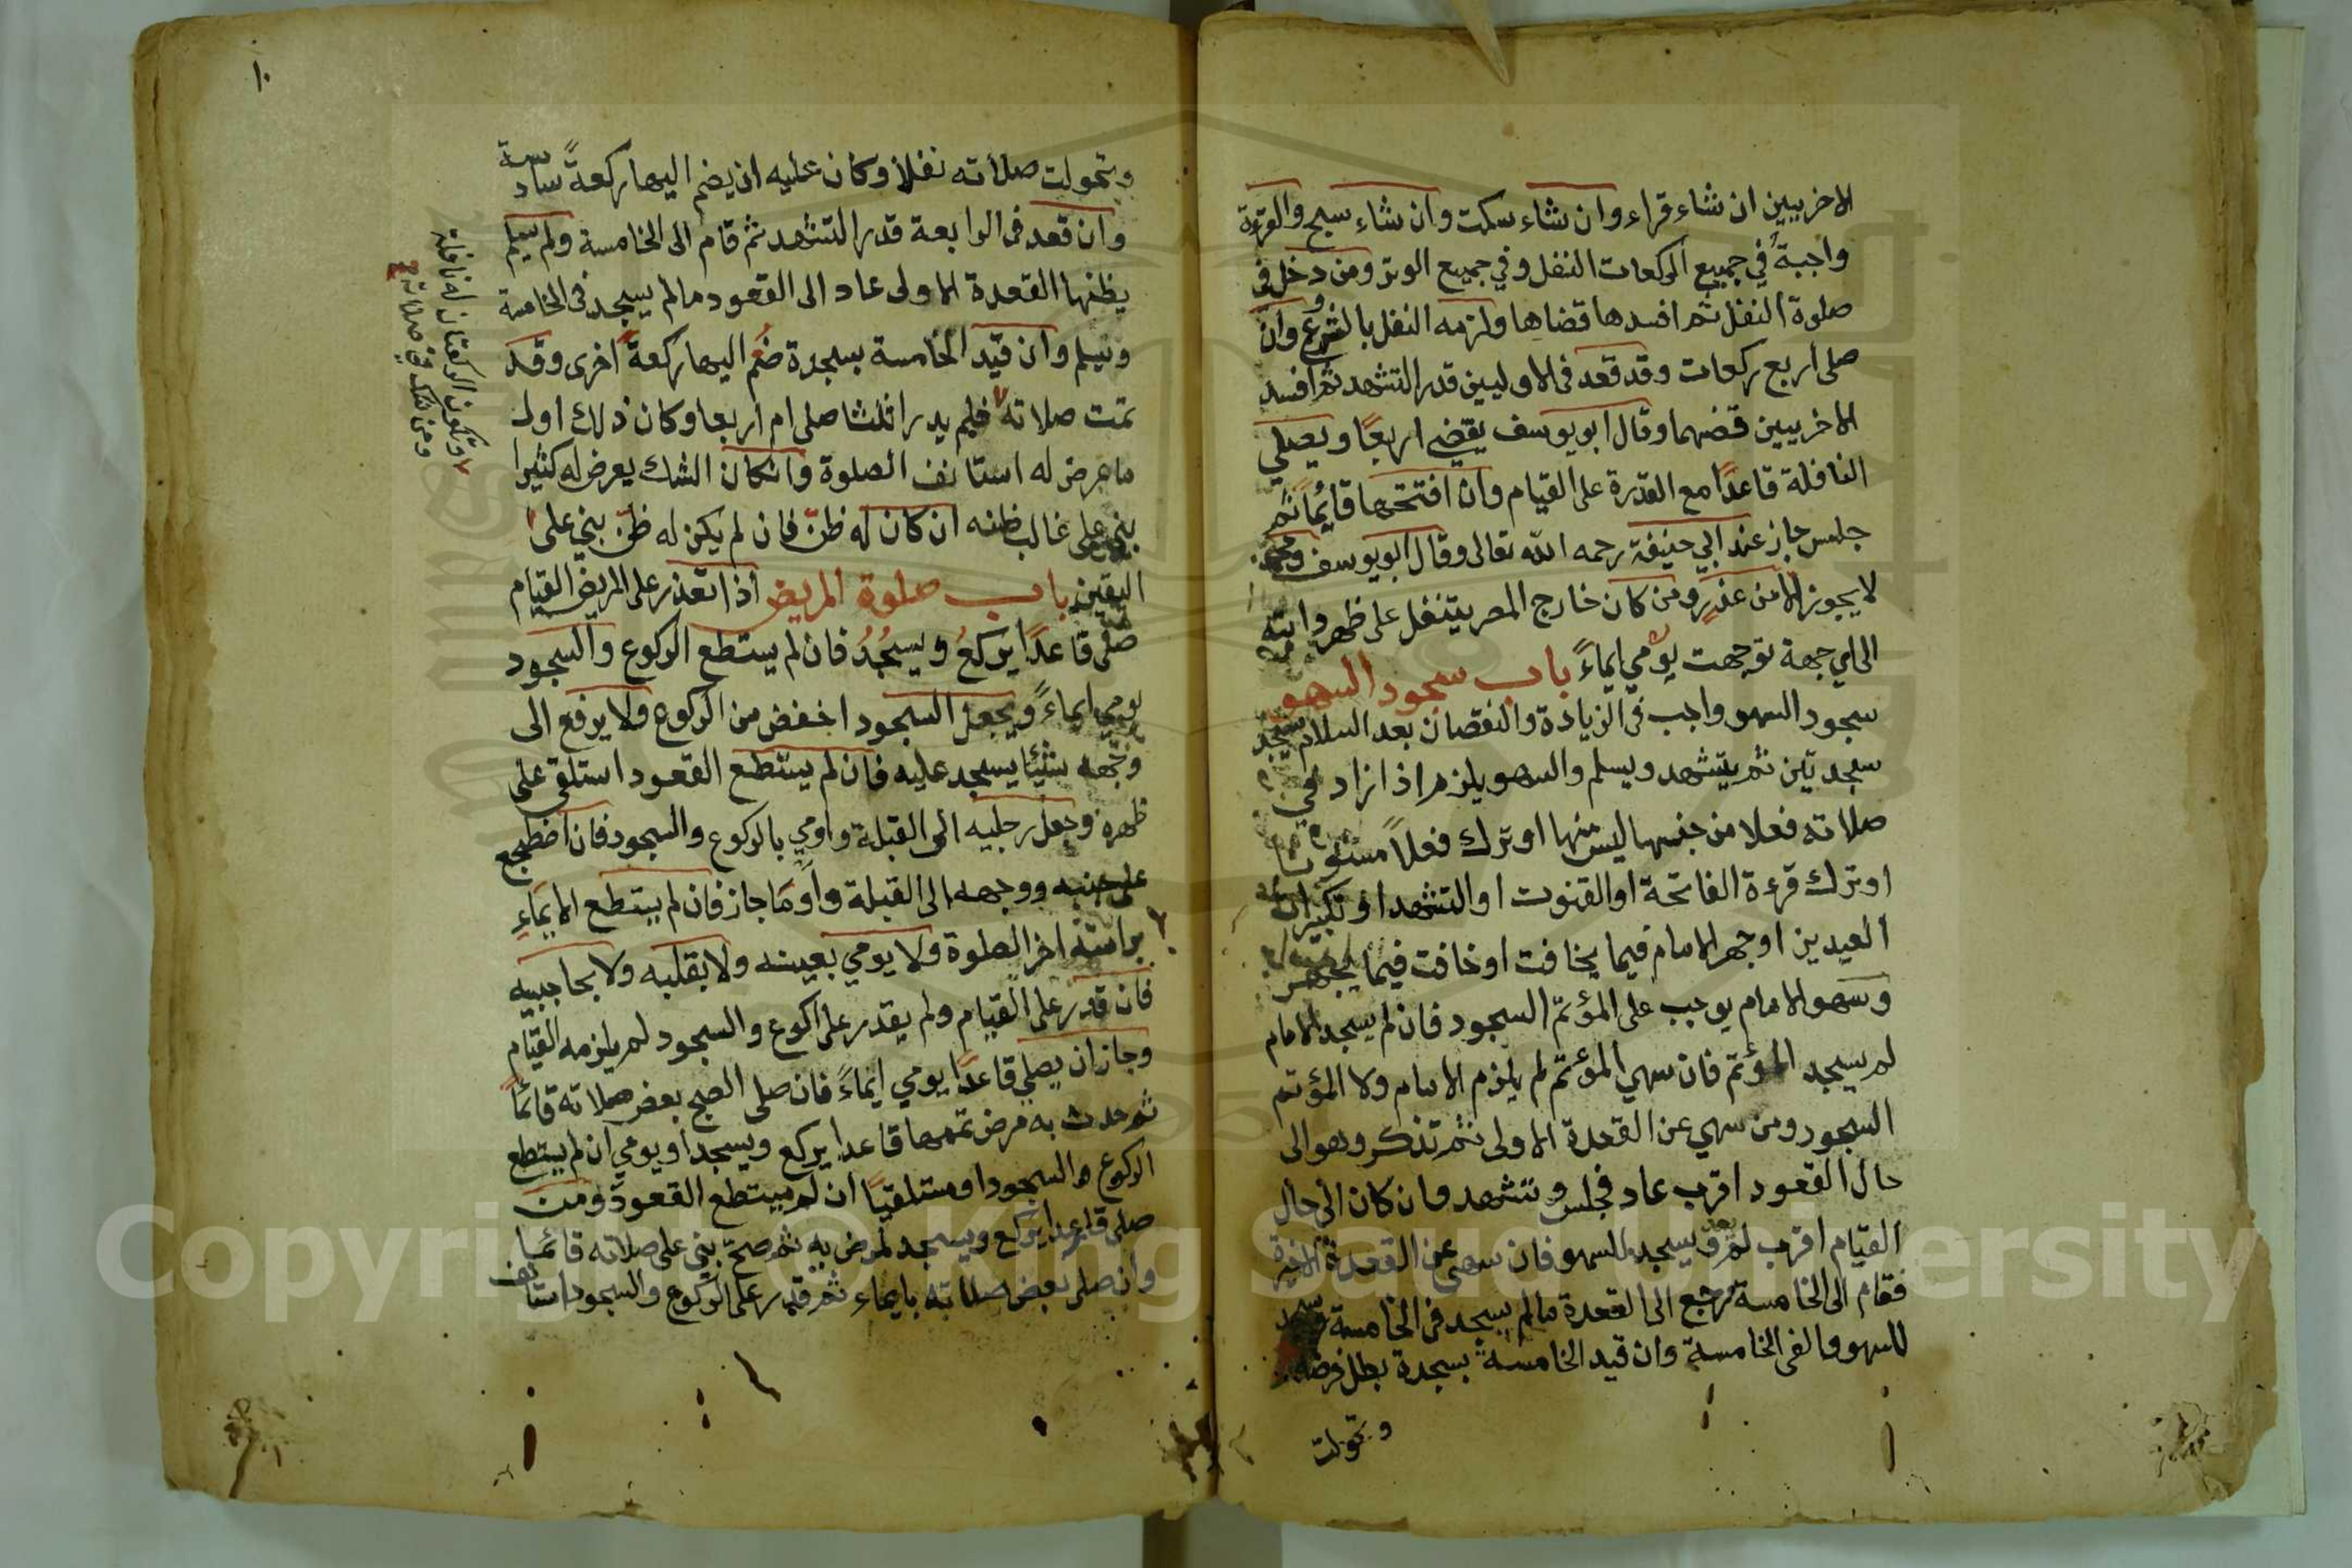 الاخريين ان شاء قراء وان شاء سكت وان شاء سبح والقرءة
واجبةٌ في جميع الركعات النفل وفي جميع الوتر ومن دخل في
صلوة النفل ثم افسدها قضاها ولزمه النفل بالشروع وان
صلى اربع ركعات وقد قعد في الاوليين قدر التشهد ثم افسد
الاخريين قضهما وقال ابو يوسف يقضي اربعًا ويصلي
النافلة قاعدًا مع القدرة على القيام وان افتتحها قايمًا ثم
جلس جاز عند ابي حنيفة رحمه الله تعالى وقال ابو يوسف ومحمد
لا يجوز الا من عذرٍ ومن كان خارج المصر يتنفل على ظهر دابته
الى اي جهة توجهت يومي ايماءً باب سجود السهو
سجود السهو واجب في الزيادة والنقصان بعد السلام يسجد
سجدتين ثم يتشهد ويسلم والسهو يلزم اذا زاد في
صلاته فعلا من جنسها ليس منها او ترك فعلاً مسنونا
او ترك قرءة الفاتحة او القنوت او التشهد او تكبيرات
العيدين او جهر الامام فيما يخافت او خافت فيما يجهر
وسهو الامام يوجب على المؤتم السجود فان لم يسجد الامام
لم يسجد المؤتم فان سهي المؤتم لم يلزم الامام ولا المؤتم
السجود ومن سهي عن القعدة الاولى ثم تذكر وهو الى
حال القعود اقرب عاد فجلس وتشهد وان كان الى حال
القيام اقرب لم يعد ويسجد للسهو فان سهى عن القعدة الاخيرة
فقام الى الخامسة رجع الى القعدة مالم يسجد في الخامسة ويسجد
للسهو والغى الخامسة وان قيد الخامسة بسجدة بطل فرضه
وتحولت
١٠
وتحولت صلاته نفلا وكان عليه ان يضم اليها ركعةً سادسة
وان قعد في الرابعة قدر التشهد ثم قام الى الخامسة ولم يسلم
يظنها القعدة الاولى عاد الى القعود مالم يسجد في الخامسة
ويسلم وان قيد الخامسة بسجدة ضم اليها ركعة اخرى وقد
تمت صلاته فلم يدر اثلثا صلى ام اربعا وكان ذلك اول
ما عرض له استانف الصلوة وان كان الشك يعرض له كثيرا
بنى على غالب ظنه ان كان له ظنّ فان لم يكن له ظنّ بني على
اليقين باب صلوة المريض اذا تعذر على المريض القيام
صلى قاعدًا يركعُ ويسجُدُ فان لم يستطع الركوع والسجود
يومي ايماءً ويجعل السجود اخفض من الركوع ولا يرفع الى
وجهه شيئًا يسجد عليه فان لم يستطع القعود استلقى على
ظهره وجعل رجليه الى القبلة واومي بالركوع والسجود فان اضطجع
على جنبه ووجهه الى القبلة واومَا جاز فان لم يستطع الايماءِ
براسه اخر الصلوة ولا يومي بعينه ولا بقلبه ولا بحاجبيه
فان قدر على القيام ولم يقدر على اكوع والسجود لم يلزمه القيام
وجاز ان يصلي قاعدًا يومي ايماءً فان صلى الصحيح بعض صلاته قائمًا
ثم حدث به مرض تممها قاعدا يركع ويسجد او يومي ان لم يستطع
الركوع والسجود او مستلقيًا ان لم يستطع القعود ومن
صلى قاعدا يركع ويسجد لمرض به ثم صحّ بنى على صلاته قائما
وان صلى بعض صلاته بايماء ثم قدر على الركوع والسجود استانف
وتكون الركعتان له نافلة
ومن شك في صلاته
Copyright © King Saud University